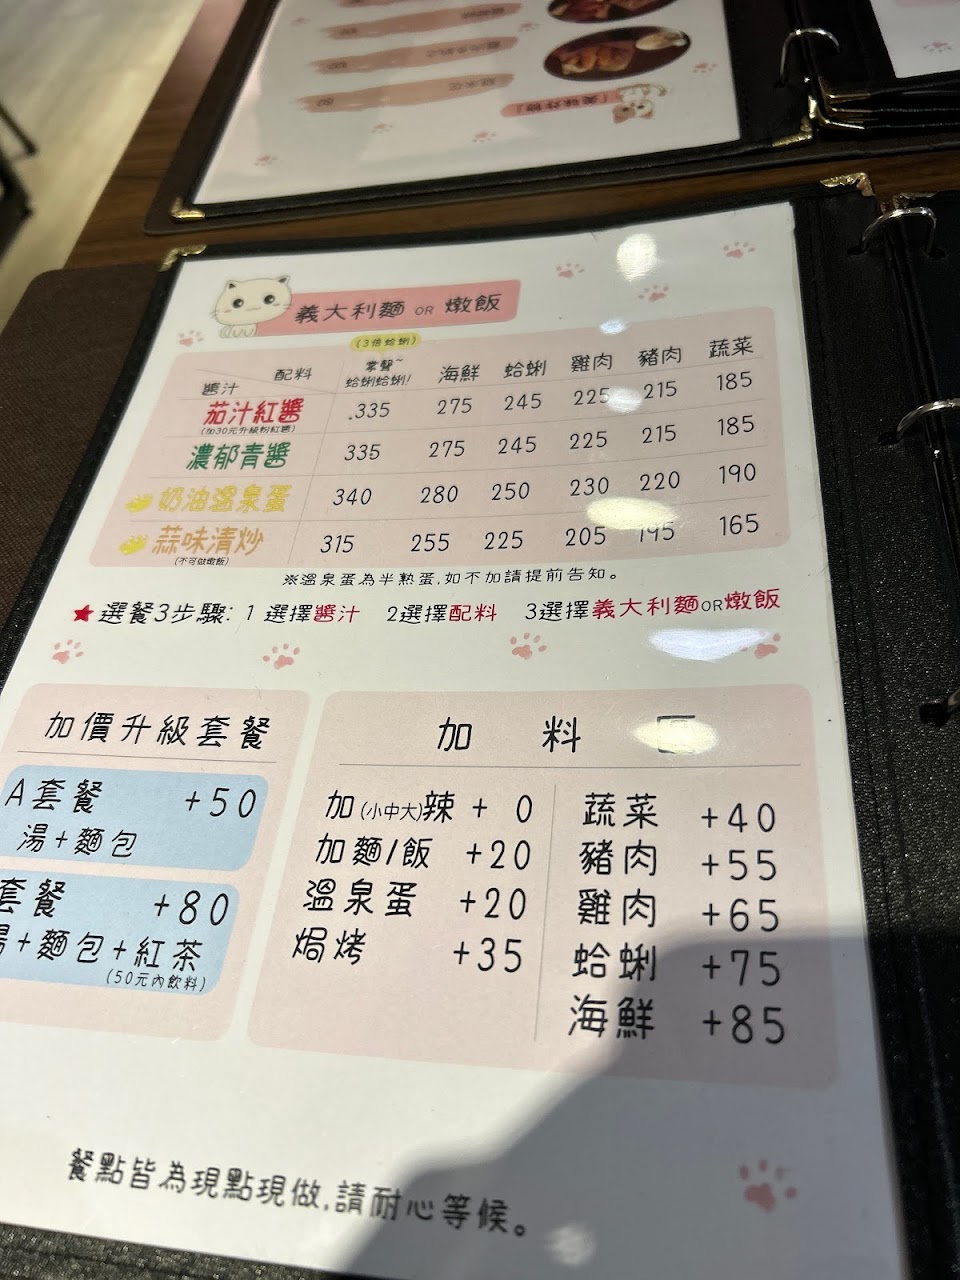 義大利麵 OR 燉飯
(3倍蛤蜊)
配料 掌聲~ 蛤蜊蛤蜊! 海鮮 蛤蜊 雞肉 豬肉 蔬菜
醬汁
茄汁紅醬 335 275 245 225 215 185
(加30元升級粉紅醬)
濃郁青醬 335 275 245 225 215 185
奶油溫泉蛋 340 280 250 230 220 190
蒜味清炒 315 255 225 205 195 165
(不可做燉飯)
※溫泉蛋為半熟蛋,如不加請提前告知。
★選餐3步驟: 1 選擇醬汁 2選擇配料 3選擇義大利麵OR燉飯
加價升級套餐
A套餐 +50
湯+麵包
套餐 +80
湯+麵包+紅茶
(50元內飲料)
加料
加(小中大)辣 + 0
加麵/飯 +20
溫泉蛋 +20
焗烤 +35
蔬菜 +40
豬肉 +55
雞肉 +65
蛤蜊 +75
海鮮 +85
餐點皆為現點現做,請耐心等候。